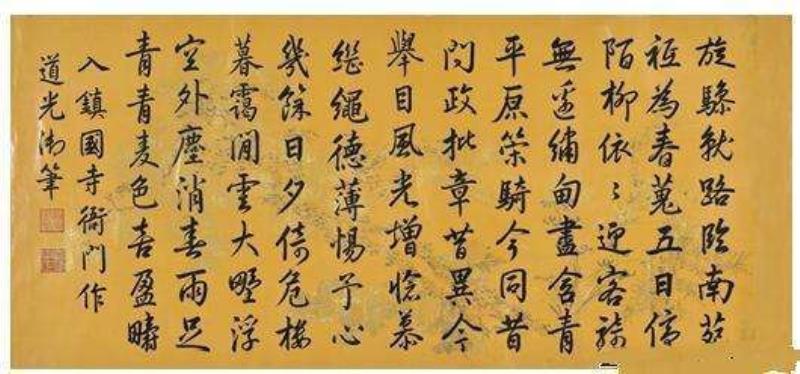 旋驂就路臨南苑
祗為春蒐五日停
陌柳依〻迎客
無邊繡甸盡含青
平原策騎今同昔
問政批章昔異今
舉目風光增愴慕
繼繩德薄惕予心
幾餘日夕倚危樓
暮靄閒雲大野浮
空外塵消春雨足
青青麦色喜盈疇
入鎮國寺衙門作
道光御筆